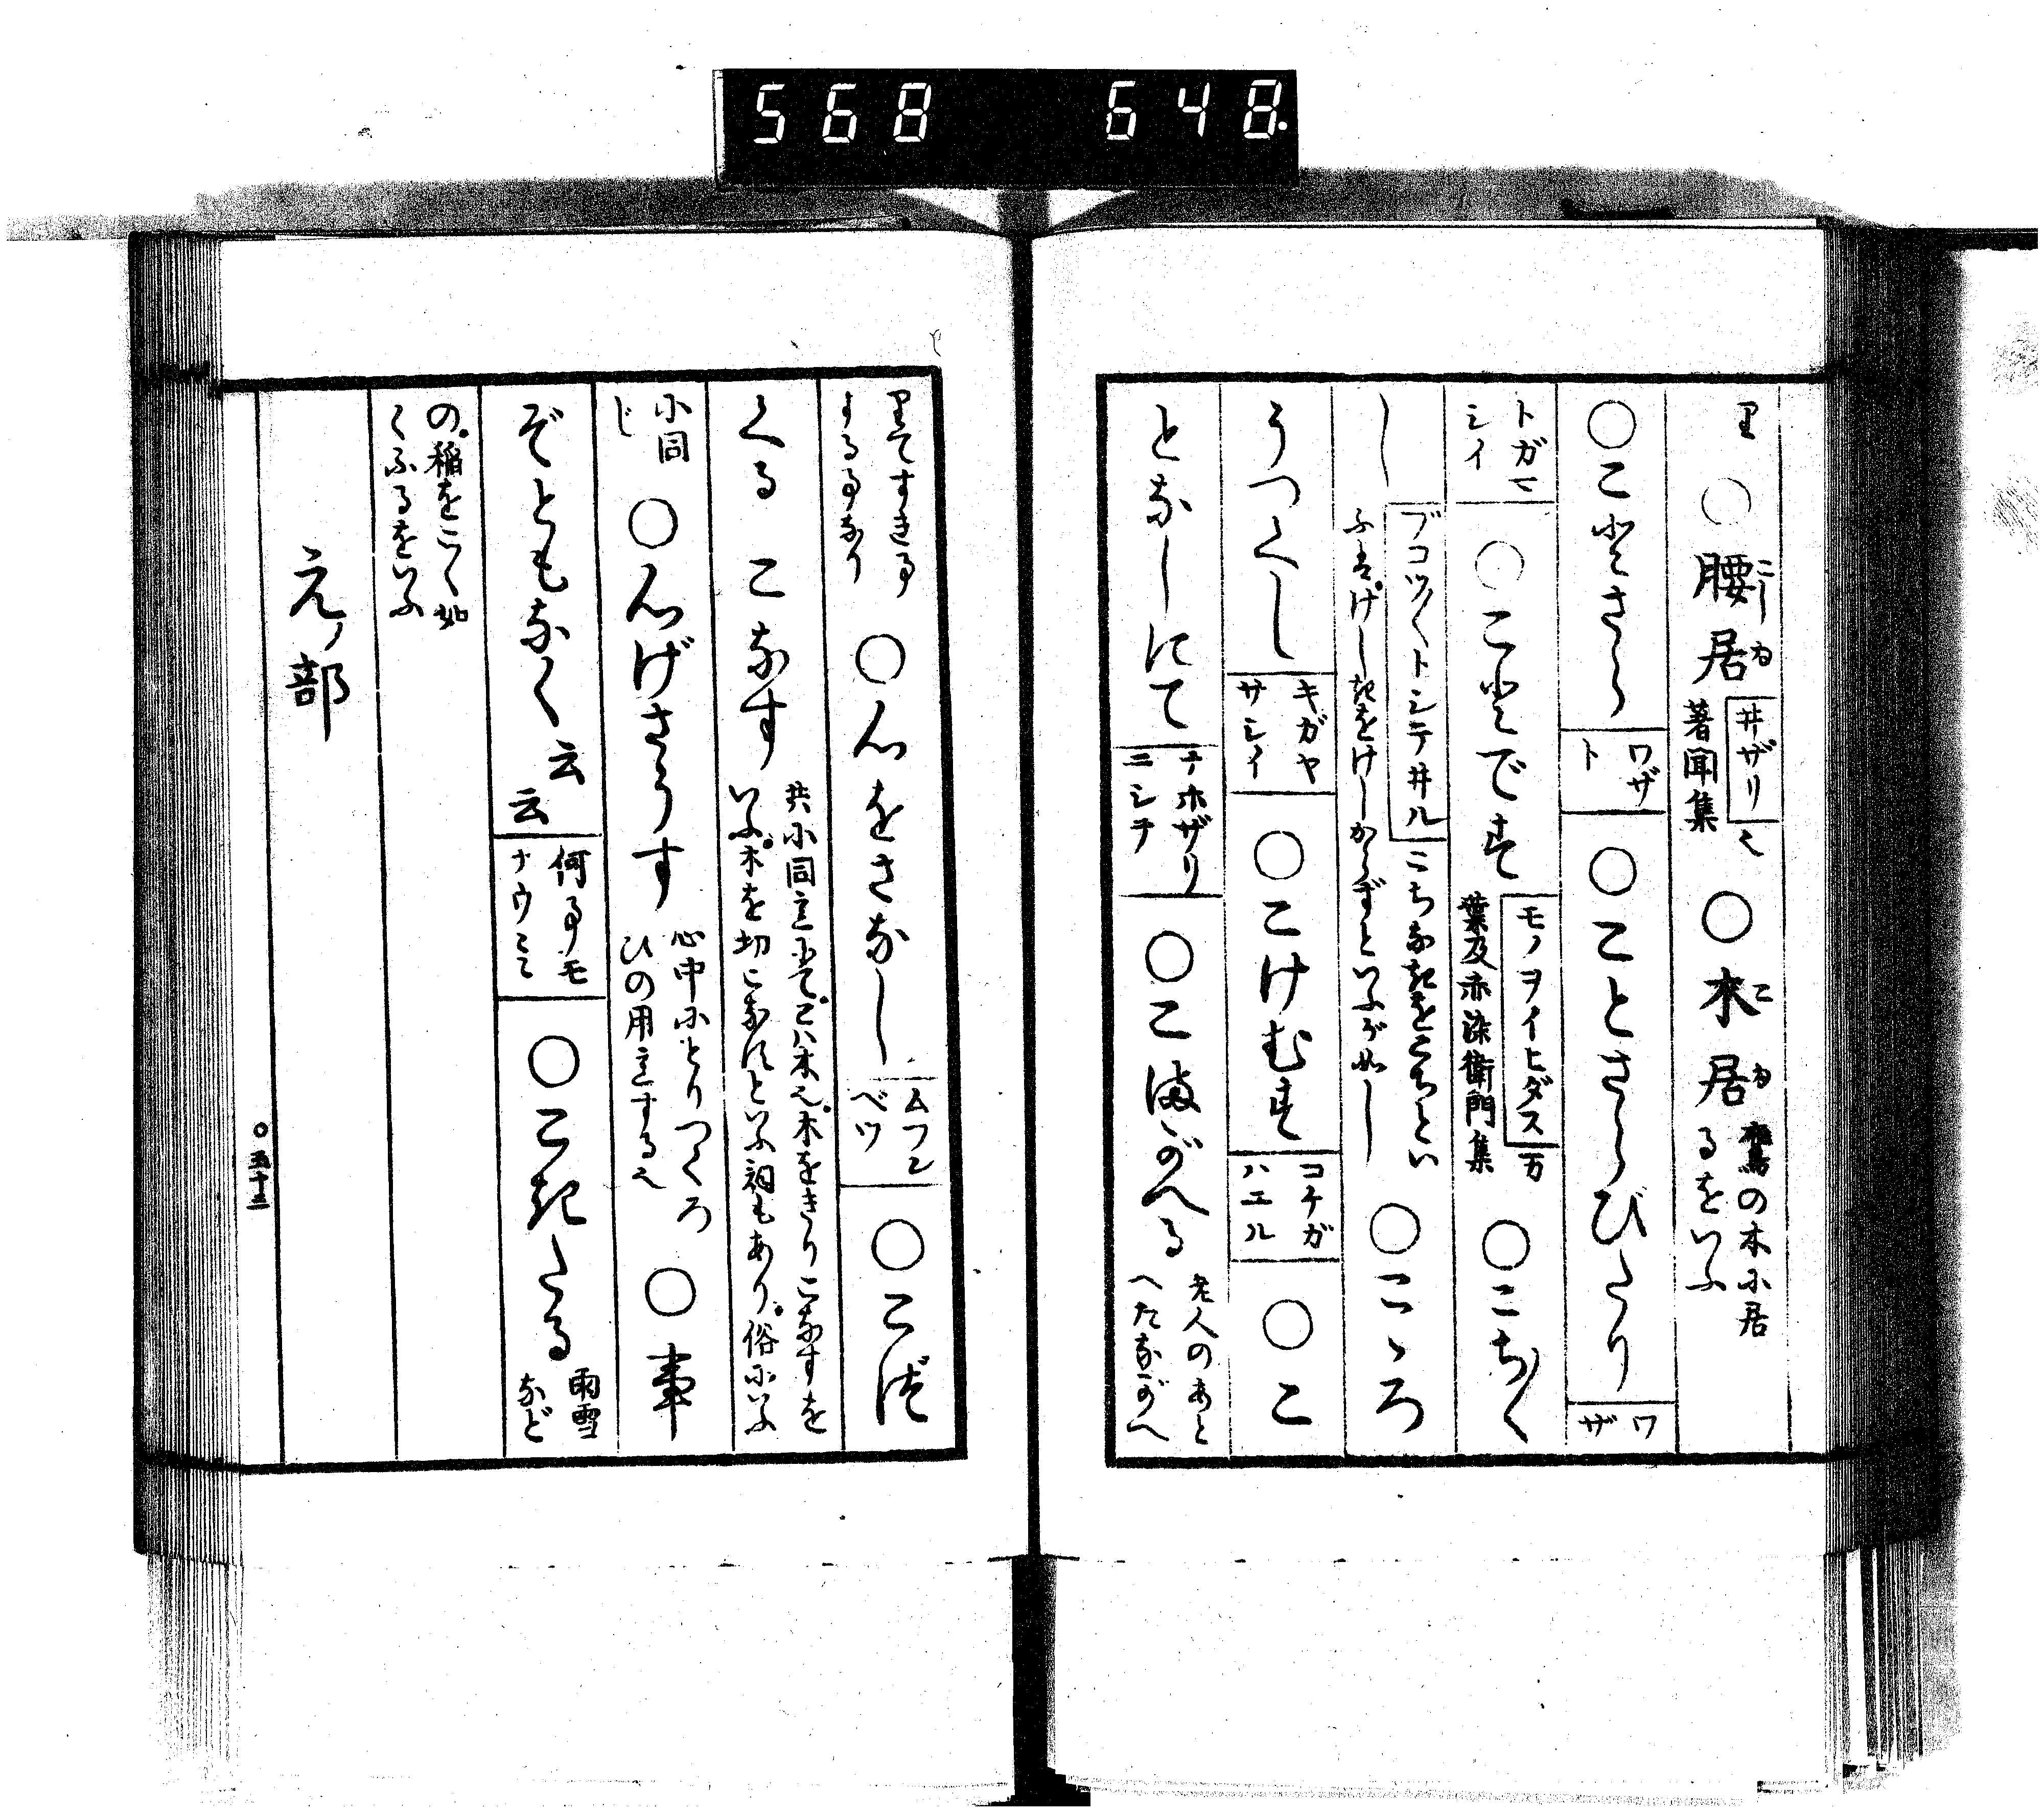 568 648.
里 ○腰居 こしゐ 井ザリ 也 著聞集 ○木居 こゐ 鷹の木に居るをいふ
○ことさら ワザト ○ことさらびたり ワザ
トガマシイ ○ことです モノヲイヒダス 万葉及赤染衛門集 ○こち〳〵
し ブコツ〳〵トシテ井ル こちなきをこちといふは。けしきをけしからずといふが如し ○こゝろ
うつくし キガヤサシイ ○こけむす コケガハエル ○こ
となしにて ナホザリニシテ ○こまがへる 老人のあとへたながへ
里てすきる するなり ○心をさなし ムフンベツ ○こづ
くる こなす 共に同言にて。こは木也。木をきりこなすをいふ。木を切こなすといふ詞もあり。俗にいふ
に同じ ○心げさうす 心中にとりつくろひの用意する也 ○事
ぞともなく云云 何事モナウミミ ○こきたる 雨雪など
の。稲をこく如くふるをいふ
えノ部
○五十三